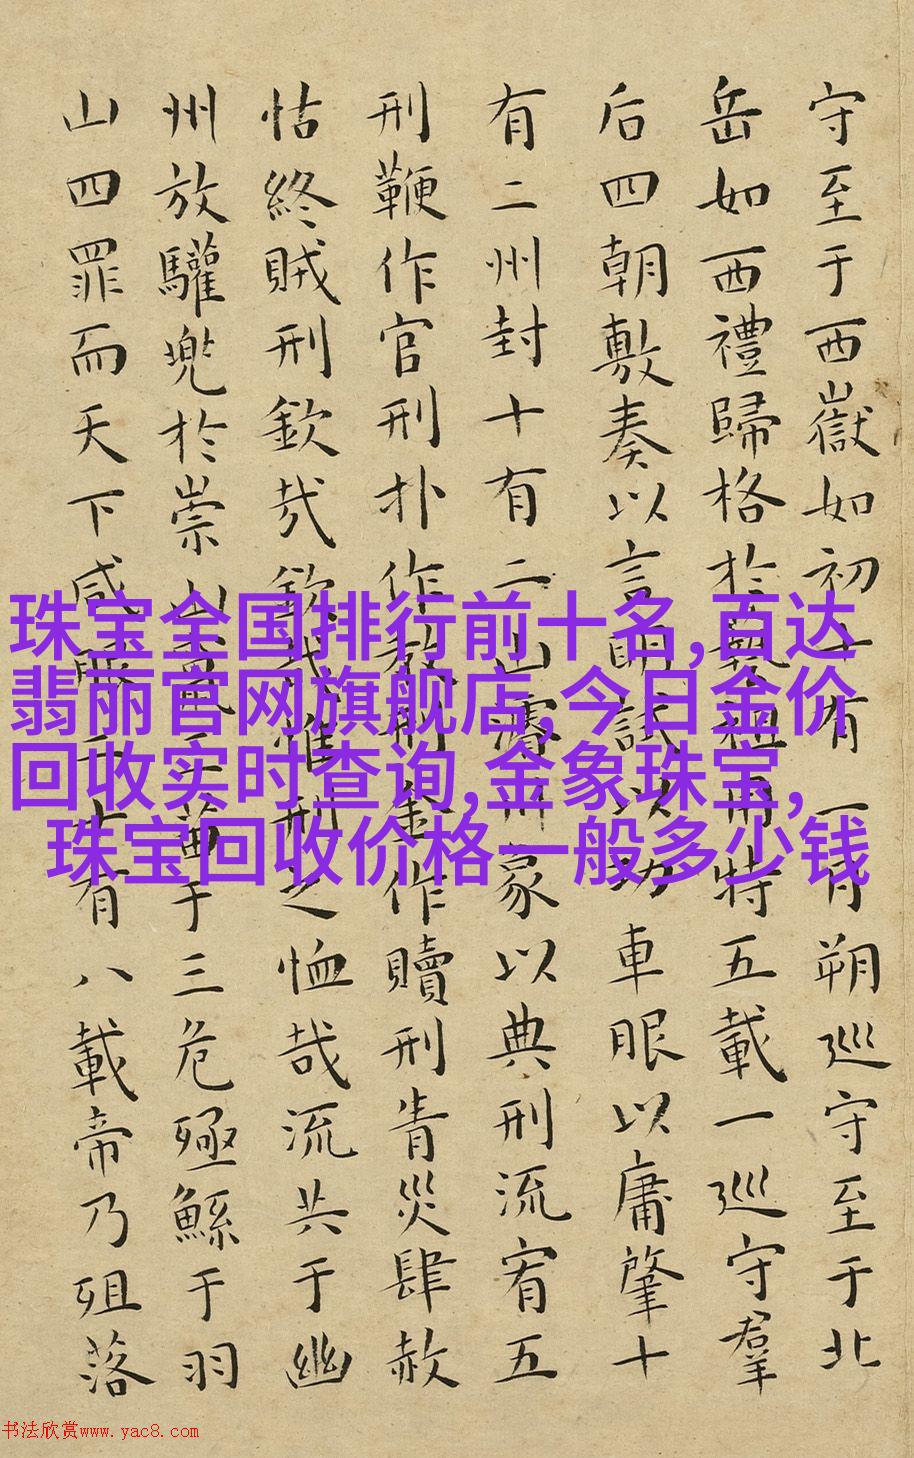 守至于西嶽如初十有一月朔巡守至于北
岳如西禮歸格於藝祖用特五載一巡守羣
后四朝敷奏以言明試以功車眼以庸肇十
有二州封十有二山濬川冢以典刑流宥五
刑鞭作官刑扑作教刑金作贖刑眚災肆赦
怙終賊刑欽哉欽哉惟刑之恤哉流共于幽
州放驩兜於崇山竄三苗于三危殛鯀于羽
山四罪而天下咸服二十有八載帝乃殂落
珠宝全国排行前十名,百达
翡丽官网旗舰店,今日金价
回收实时查询,金象珠宝,
珠宝回收价格一般多少钱
书法欣赏www.yac8.com